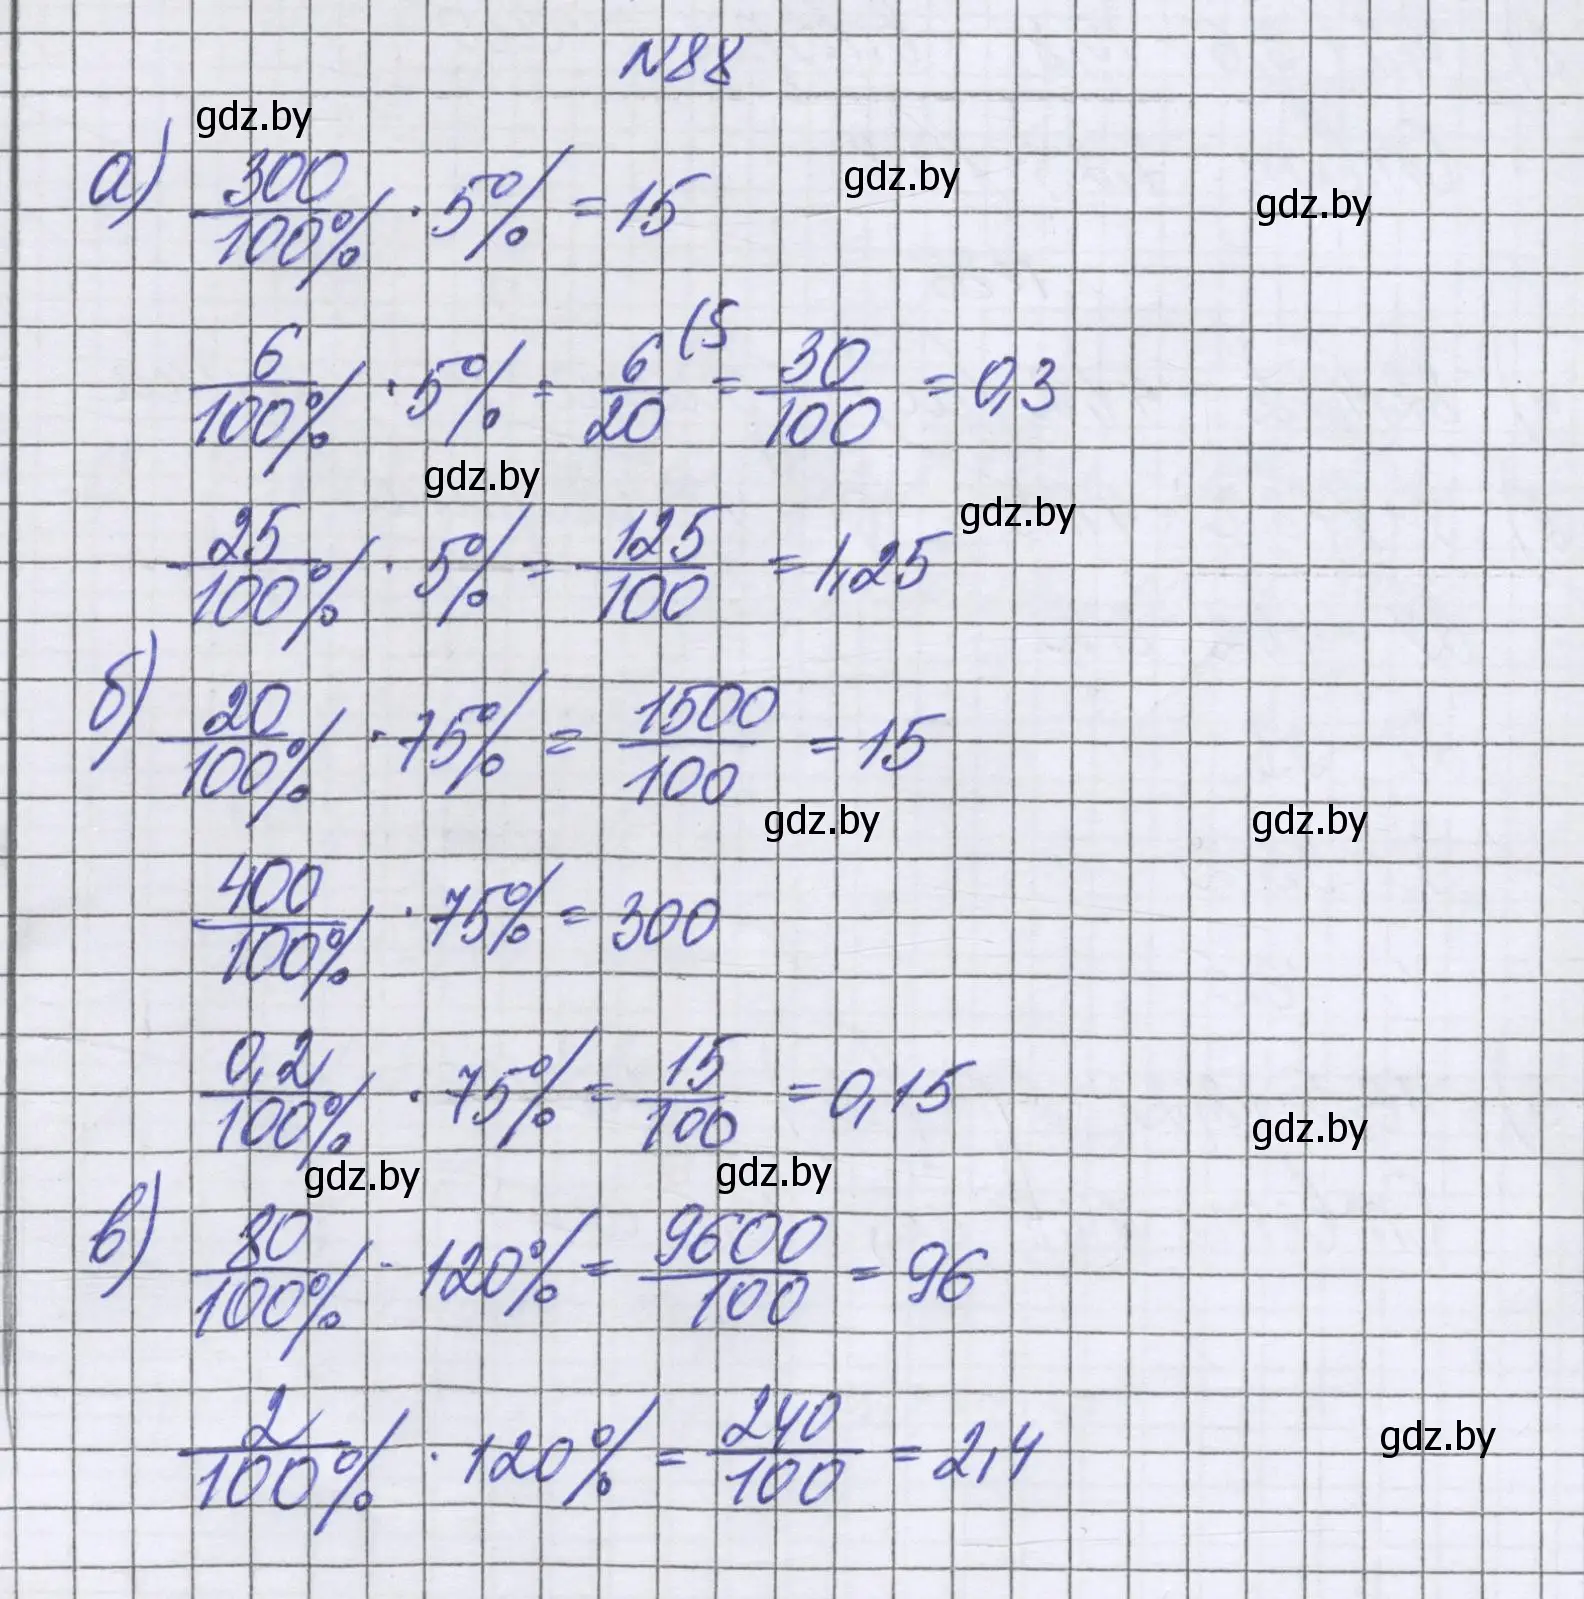 №88
gdz.by
а) 300/100% · 5% = 15
gdz.by
gdz.by
6/100% · 5% = 6/20 (5 = 30/100 = 0,3
gdz.by
gdz.by
25/100% · 5% = 125/100 = 1,25
б) 20/100% · 75% = 1500/100 = 15
gdz.by
gdz.by
400/100% · 75% = 300
0,2/100% · 75% = 15/100 = 0,15
gdz.by
gdz.by
gdz.by
в) 80/100% · 120% = 9600/100 = 96
2/100% · 120% = 240/100 = 2,4
gdz.by